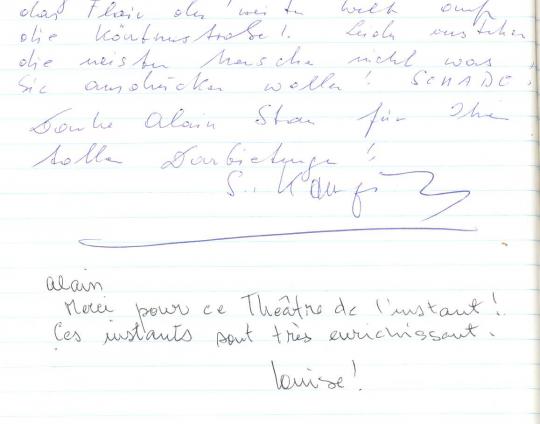 das Flair der weiten Welt auf
die Kärntnerstraße! Leider verstehen
die meisten Menschen nicht was
Sie ausdrücken wollen! SCHADE!
Danke Alain Star für Ihre
tollen Darbietungen!
S.
alain
Merci pour ce Théâtre de l'instant!
Ces instants sont très enrichissant.
Louise!